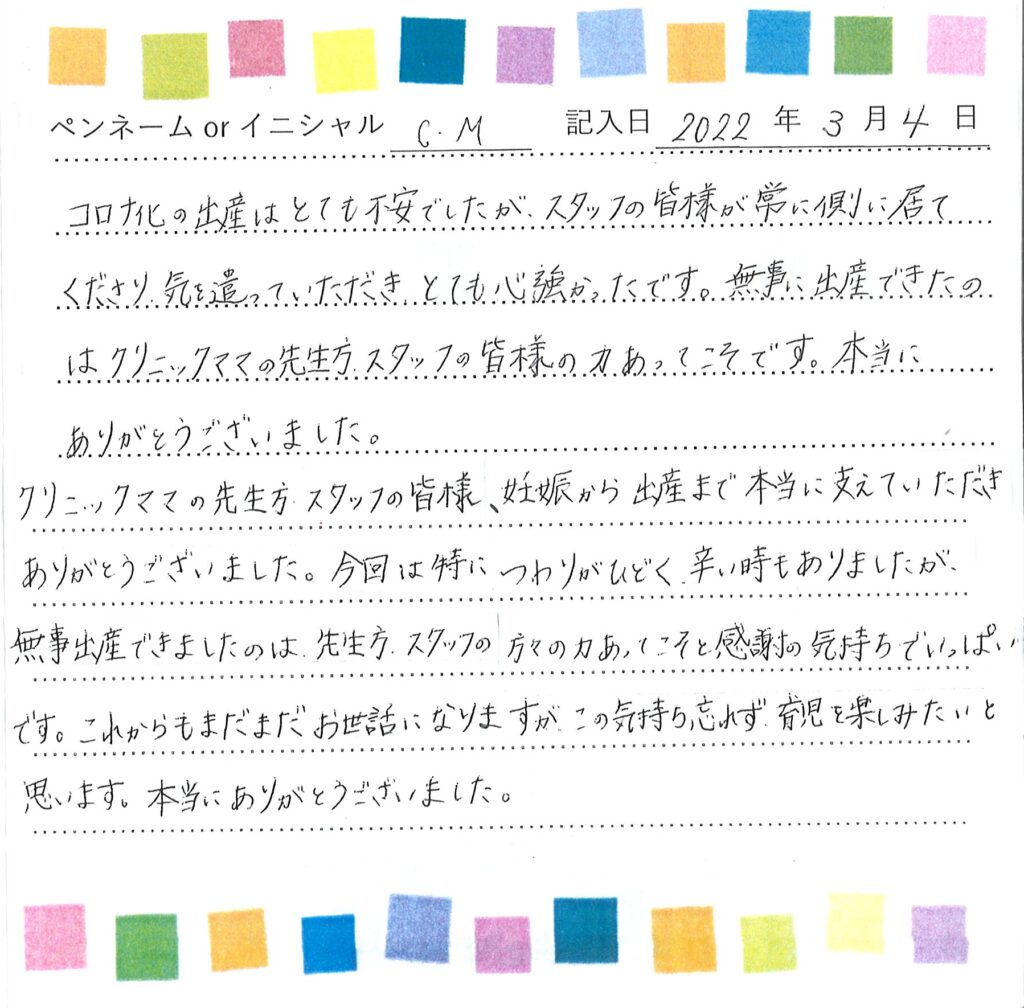 ペンネーム or イニシャル C.M 記入日 2022 年 3 月 4 日
コロナ化の出産はとても不安でしたが、スタッフの皆様が常に側に居て
くださり、気を遣っていただき、とても心強かったです。無事に出産できたの
はクリニックママの先生方、スタッフの皆様の力あってこそです。本当に
ありがとうございました。
クリニックママの先生方、スタッフの皆様、妊娠から出産まで本当に支えていただき
ありがとうございました。今回は特につわりがひどく、辛い時もありましたが、
無事出産できましたのは、先生方、スタッフの方々の力あってこそと感謝の気持ちでいっぱい
です。これからもまだまだお世話になりますが、この気持ち忘れず、育児を楽しみたいと
思います。本当にありがとうございました。